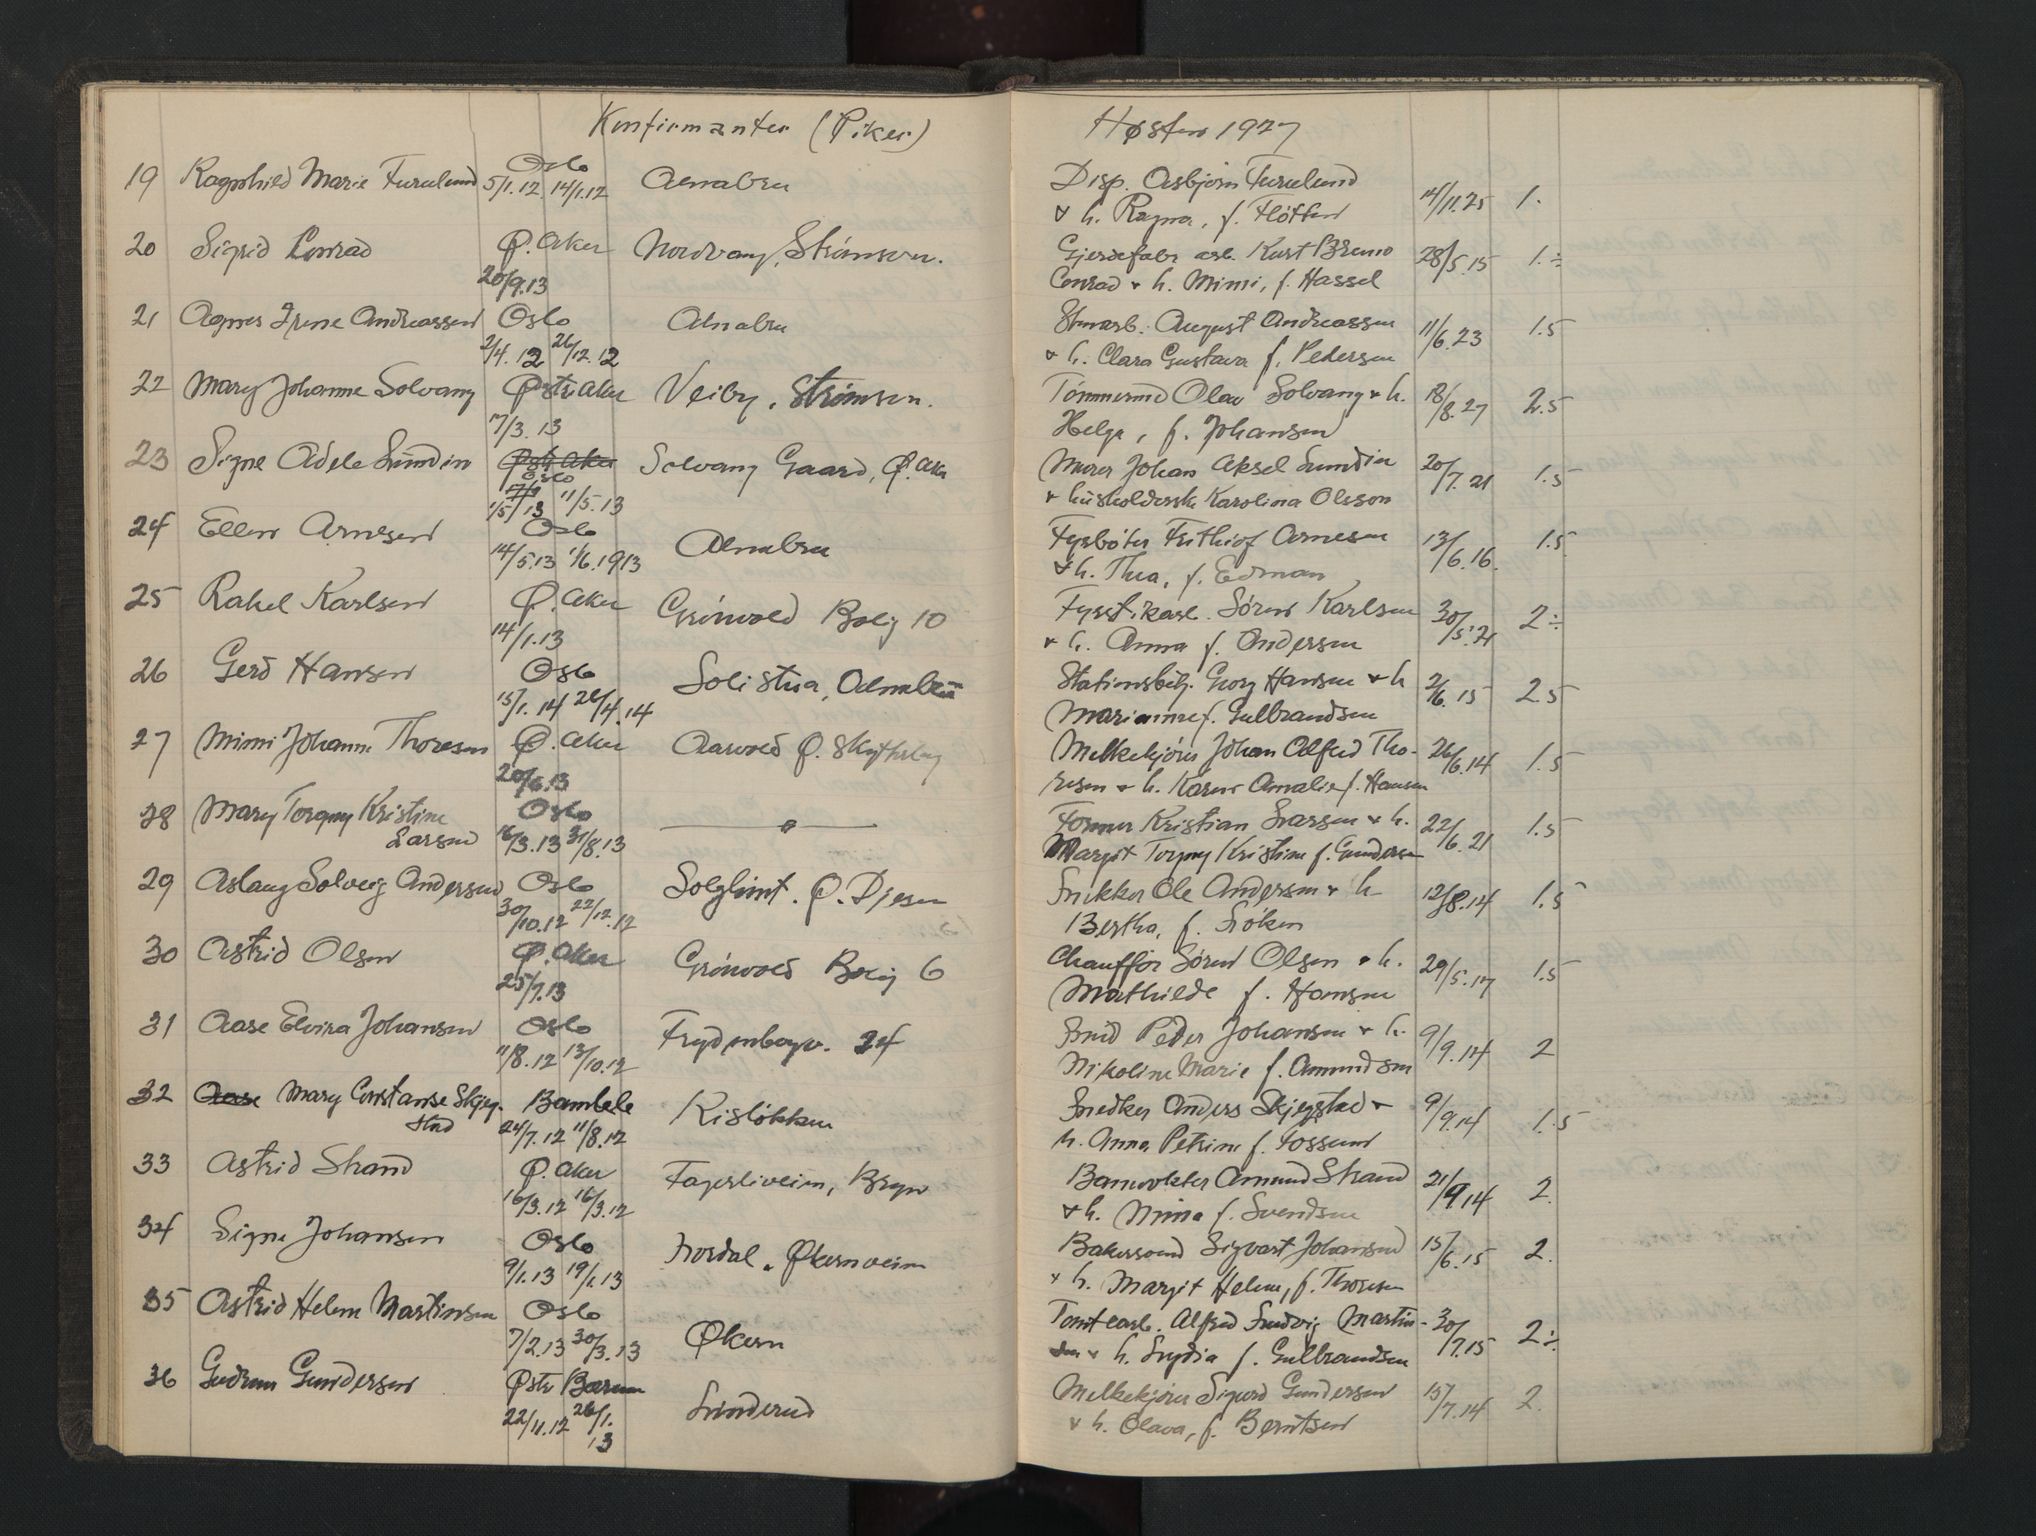 Konfirmanter (Piker) Høsten 1927
19 Ragnhild Marie Furulund Oslo 5/1.12 14/1.12 Alnabru
Disp. Asbjørn Furulund 14/11.25 1.
& h. Ragna, f. Fløtten
20 Sigrid Conrad Ø. Aker 20/9.13 Nordvang, Strømsvn.
Gjerdefabr. arb. Kurt Bruno 28/5.15 1.÷
Conrad & h. Mimi, f. Hassel
21 Agnes Irene Andreassen Oslo 2/4.12 26/12.12 Alnabru
August Andreassen 11/6.23 1.5
& h. Clara Gustava f. Pedersen
22 Mary Johanne Solvang Østr. Aker 17/3.13 Veiby, Strømsvn.
Tömmermd Olav Solvang & h. 18/8.27 2.5
Helga, f. Johansen
23 Signe Adele Lundin Østr Aker Oslo 1/5/13 11/5.13 Solvang Gaard, Ø. Aker
Murer Johan Aksel Lundin 20/7.21 1.5
& husholdersk Karolina Olsson
24 Ellen Arnesen Oslo 14/5.13 1/6.1913 Alnabru
Fyrbøter Frithiof Arnesen 13/6.16. 1.5
& h. Thea, f. Edman
25 Rakel Karlsen Ø. Aker 14/1.13 Grönvold Bolig 10
Fyrstikarb. Sören Karlsen 30/5.21 2÷
& h. Anna f. Andersen
26 Gerd Hansen Oslo 15/1.14 26/4.14 Solistua, Alnabru
Stationsbetj. Georg Hansen & h 2/6.15 2 5
Marianne f. Gulbrandsen
27 Mimi Johanne Thoresen Ø. Aker 20/6.13 Aarvold Ø.
Melkekjörer Johan Alfred Tho- 26/6.14 1.5
resen & h. Karen Amalie f. Hansen
28 Mary Torgny Kristine Oslo
Larsen 16/3.13 31/8.13 — " —
Former Kristian Larsen & h. 22/6.21 1.5
Margit Torgny Kristine f. Gundersen
29 Aslaug Solveig Andersen Oslo 30/10.12 22/12.12 Solglimt. Ø.
Snikker Ole Andersen & h 12/8.14 1.5
Bertha, f. Fröken
30 Astrid Olsen Ø. Aker 25/7.13 Grönvold Bolig 6
Chauffør Sören Olsen & h. 29/5.17 1.5
Mathilde f. Hansen
31 Aase Elvira Johansen Oslo 11/8.12 13/10.12 Frydenbergv. 24
Smed Peder Johansen & h. 9/9.14 2
Nikoline Marie f. Amundsen
32 Aase Mary Constanse Skjeg- Bamble
stad 24/7.12 11/8.12 Kisløkken
Snedker Anders Skjegstad & 9/9.14 1.5
h. Anna Petrine f. Fossum
33 Astrid Strand Ø. Aker 16/3.12 16/3.12 Fagerliveien, Bryn
Banevokter Amund Strand 21/9.14 2.
& h. Mina f. Svendsen
34 Signe Johansen Oslo 9/1.13 19/1.13 Nordal. Økernveien
Bakersvend Sigvart Johansen 15/6.15 2.
& h. Margit Helene, f. Thoresen
35 Astrid Helene Martinsen Oslo 7/2.13 30/3.13 Økern
Tomtearb. Alfred Ludvig Martin- 30/7.15 2÷
sen & h. Lydia f. Gulbrandsen
36 Gudrun Gundersen Østr Bærum 22/11.12 26/1.13 Linderud
Melkekjörer Sigurd Gundersen 15/7.14 2.
& h. Olava, f. Berntsen